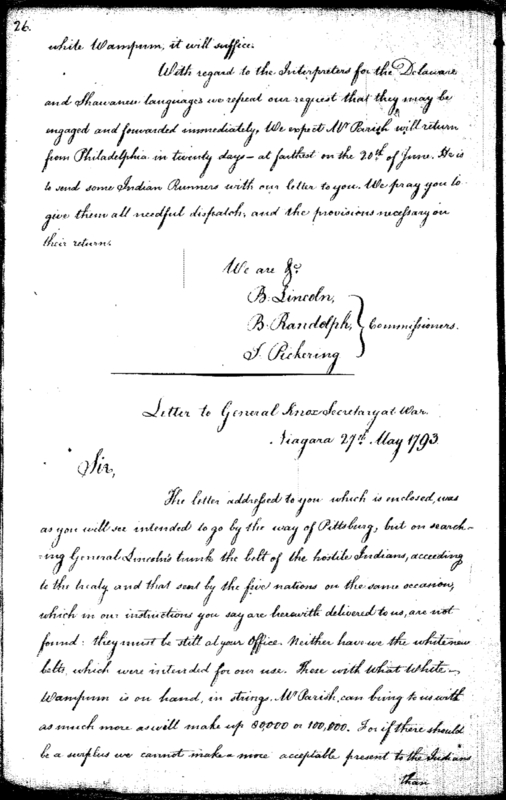 26.
white Wampum, it will suffice.
With regard to the Interpreters for the Delaware
and Shawanee languages we repeat our request that they may be
engaged and forwarded immediately. We expect Mr Parish will return
from Philadelphia in twenty days — at farthest on the 20th of June. He is
to send some Indian Runners with our letter to you. We pray you to
give them all needful dispatch, and the provisions necessary on
their return.
We are &c
B. Lincoln,
B. Randolph, } Commissioners.
T. Pickering
Letter to General Knox Secretary at War.
Niagara 27th May 1793.
Sir,
The letter addressed to you which is enclosed, was
as you will see intended to go by the way of Pittsburg; but on search-
ing General Lincoln's trunk the belt of the hostile Indians, acceeding
to the treaty and that sent by the five nations on the same occasion,
which in our instructions you say are herewith delivered to us, are not
found: they must be still at your Office. Neither have we the white new
belts, which were intended for our use. These with what White
Wampum is on hand, in strings, Mr Parish, can bring to us with
as much more as will make up 80,000 or 100,000. For if there should
be a surplus we cannot make a more acceptable present to the Indians
than